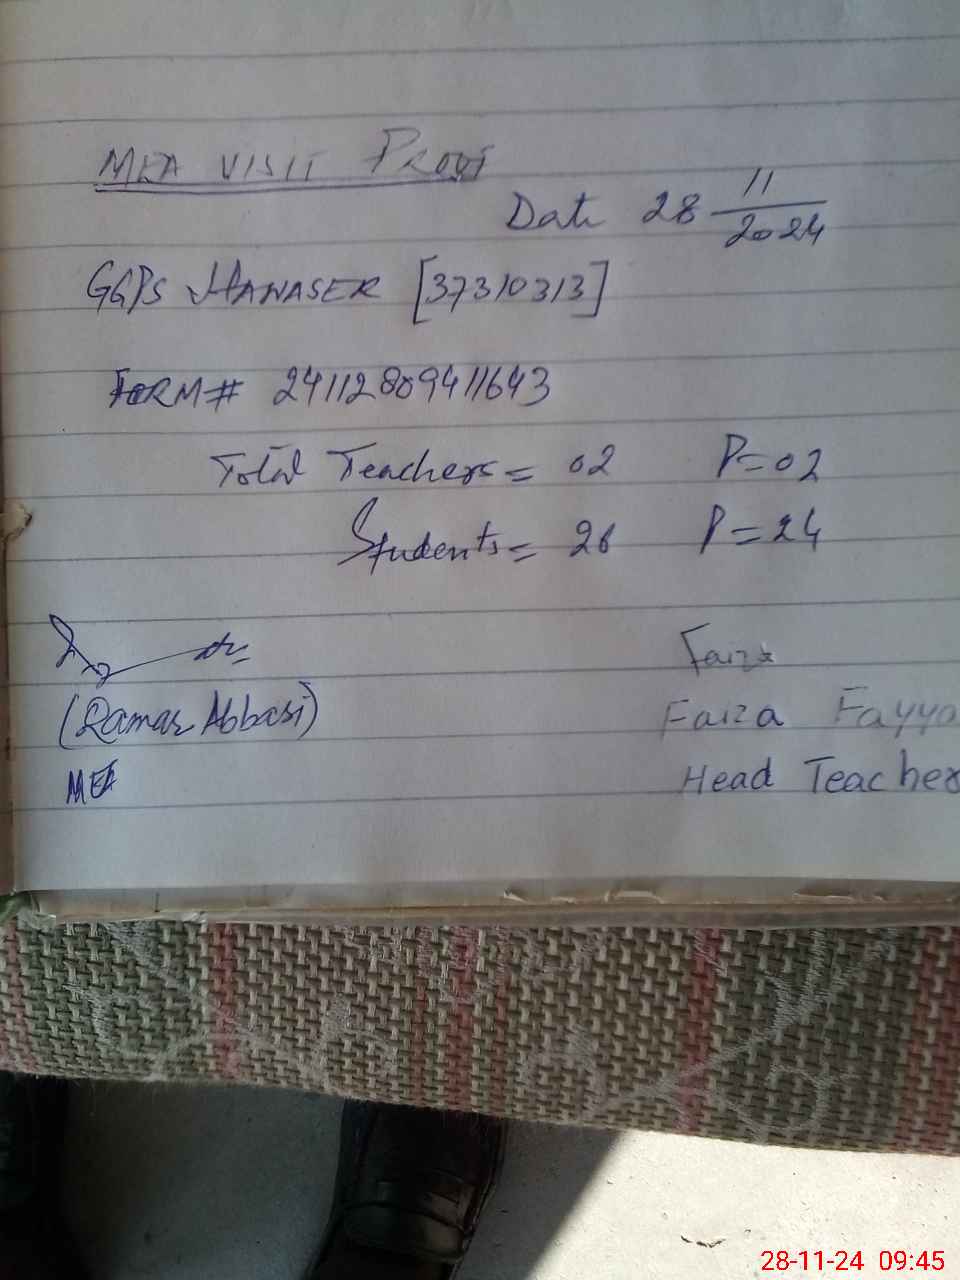 MEA VISIT PROOF
Date 28 11/2024
GGPS MANASER [37310313]
FORM# 24112809411643
Total Teachers = 02 P=02
Students = 26 P=24
Faiza
(Qamar Abbasi) Faiza Fayya
MEA Head Teacher
28-11-24 09:45